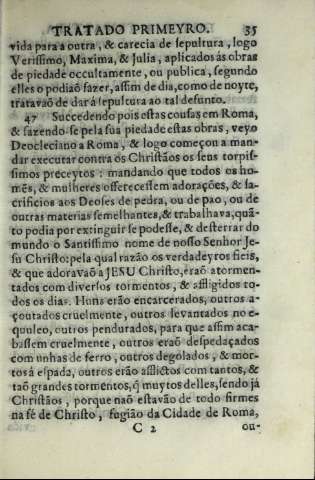 TRATADO PRIMEYRO. 35
vida para a outra, & carecia de sepultura, logo
Verissimo, Maxima, & Julia, aplicados ás obras
de piedade occultamente, ou publica, segundo
elles o podiaõ fazer, assim de dia, como de noyte,
tratavaõ de dar á sepultura ao tal defunto.
47 Succedendo pois estas cousas em Roma,
& fazendo-se pela sua piedade estas obras, veyo
Deocleciano a Roma, & logo começou a man-
dar executar contra os Christãos os seus torpis-
simos preceytos: mandando que todos os ho-
mẽs, & mulheres offerecessem adorações, & sa-
crificios aos Deoses de pedra, ou de pao, ou de
outras materias semelhantes, & trabalhava, quã-
to podia por extinguir se podesse, & desterrar do
mundo o Santissimo nome de nosso Senhor Je-
su Christo: pela qual razaõ os verdadeyros fieis,
& que adoravaõ a JESU Christo, eraõ atormen-
tados com diversos tormentos, & affligidos to-
dos os dias. Huns erão encarcerados, outros a-
çoutados cruelmente, outros levantados no e-
quuleo, outros pendurados, para que assim aca-
bassem cruelmente, outros eraõ despedaçados
com unhas de ferro, outros degolados, & mor-
tos á espada, outros erão afflictos com tantos, &
taõ grandes tormentos, q̃ muytos delles, sendo já
Christãos, porque naõ estavão de todo firmes
na fé de Christo, fugião da Cidade de Roma,
C 2 ou-